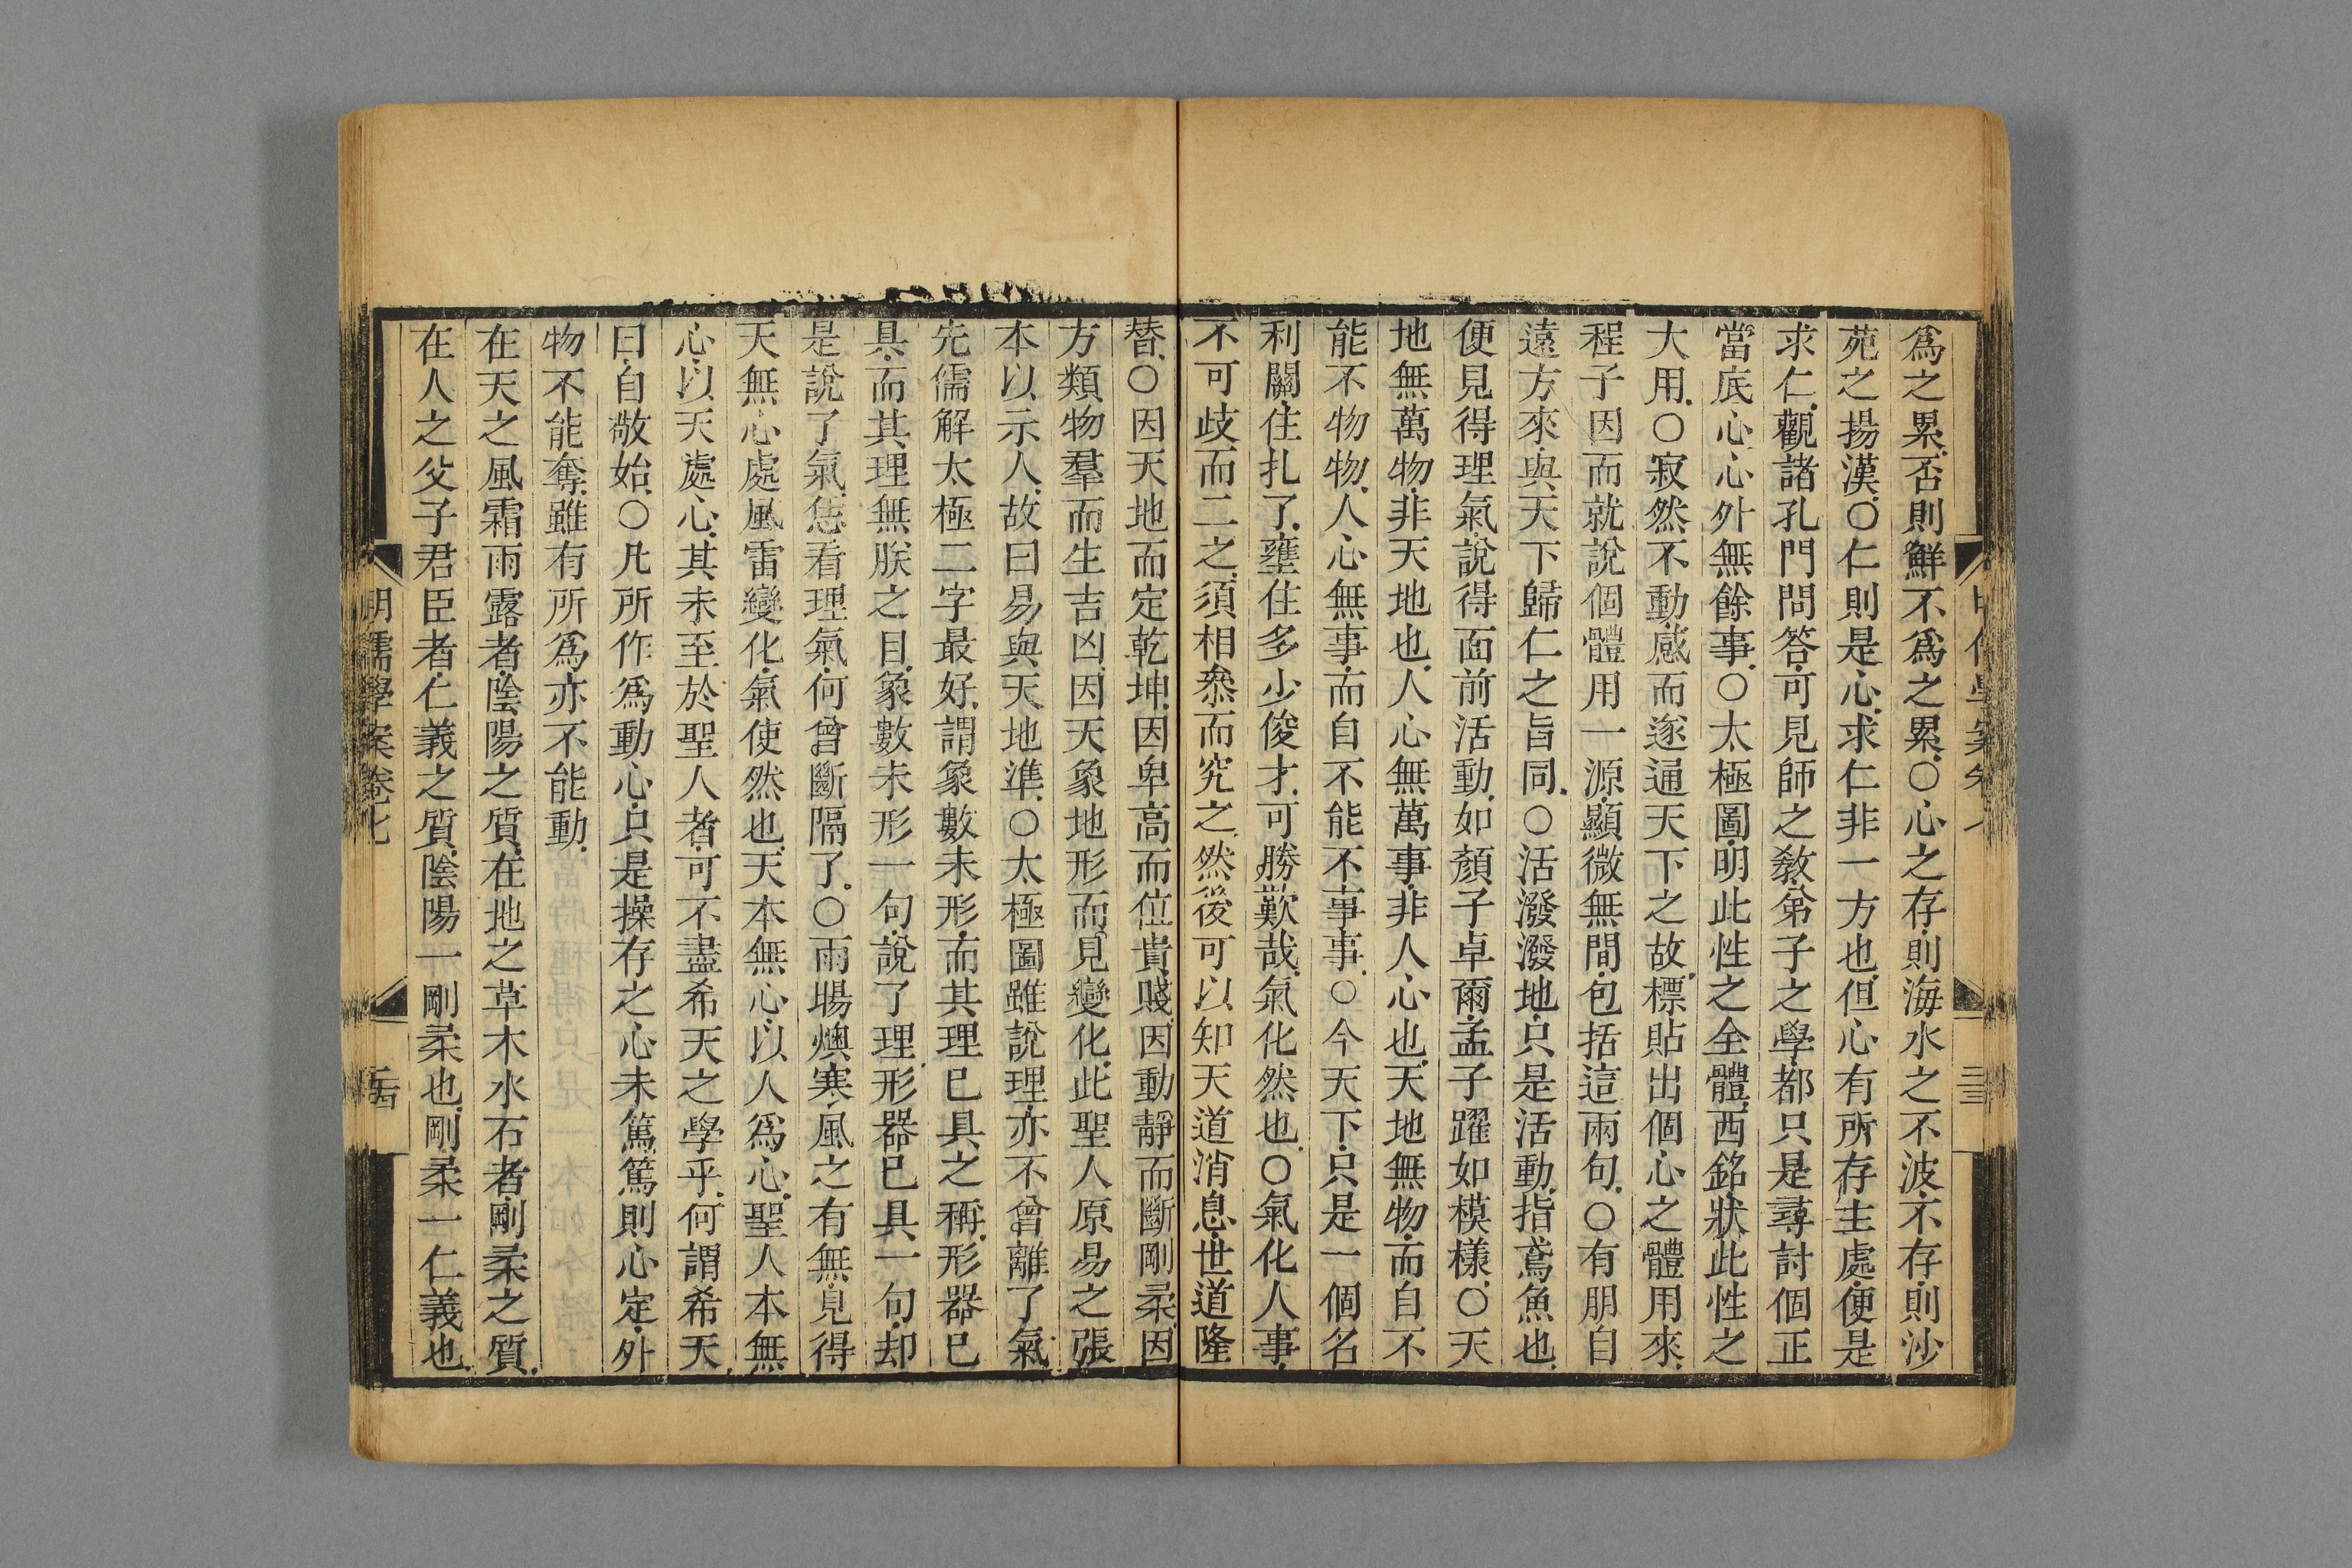 爲之累否則鮮不爲之累○心之存則海水之不波不存則沙
苑之揚漢○仁則是心求仁非一方也但心有所存主處便是
求仁觀諸孔門問答可見師之敎弟子之學都只是尋討個正
當底心心外無餘事○太極圖明此性之全體西銘狀此性之
大用○寂然不動感而遂通天下之故標貼出個心之體用來
程子因而就說個體用一源顯微無間包括這兩句○有朋自
遠方來與天下歸仁之旨同○活潑潑地只是活動指鳶魚也
便見得理氣說得面前活動如顏子卓爾孟子躍如模樣○天
地無萬物非天地也人心無萬事非人心也天地無物而自不
能不物物人心無事而自不能不事事○今天下只是一個名
利關住扎了壅住多少俊才可勝歎哉氣化然也○氣化人事
不可歧而二之須相叅而究之然後可以知天道消息世道隆
替○因天地而定乾坤因卑高而位貴賤因動靜而斷剛柔因
方類物羣而生吉凶因天象地形而見變化此聖人原易之張
本以示人故曰易與天地準○太極圖雖說理亦不曾離了氣
先儒解太極二字最好謂象數未形而其理已具之稱形器已
具而其理無朕之目象數未形一句說了理形器已具一句却
是說了氣恁看理氣何曾斷隔了○雨暘燠寒風之有無見得
天無心處風雷變化氣使然也天本無心以人爲心聖人本無
心以天處心其未至於聖人者可不盡希天之學乎何謂希天
曰自敬始○凡所作爲動心只是操存之心未篤篤則心定外
物不能奪雖有所爲亦不能動
在天之風霜雨露者陰陽之質在地之草木水石者剛柔之質
在人之父子君臣者仁義之質陰陽一剛柔也剛柔一仁義也
明儒學案卷七